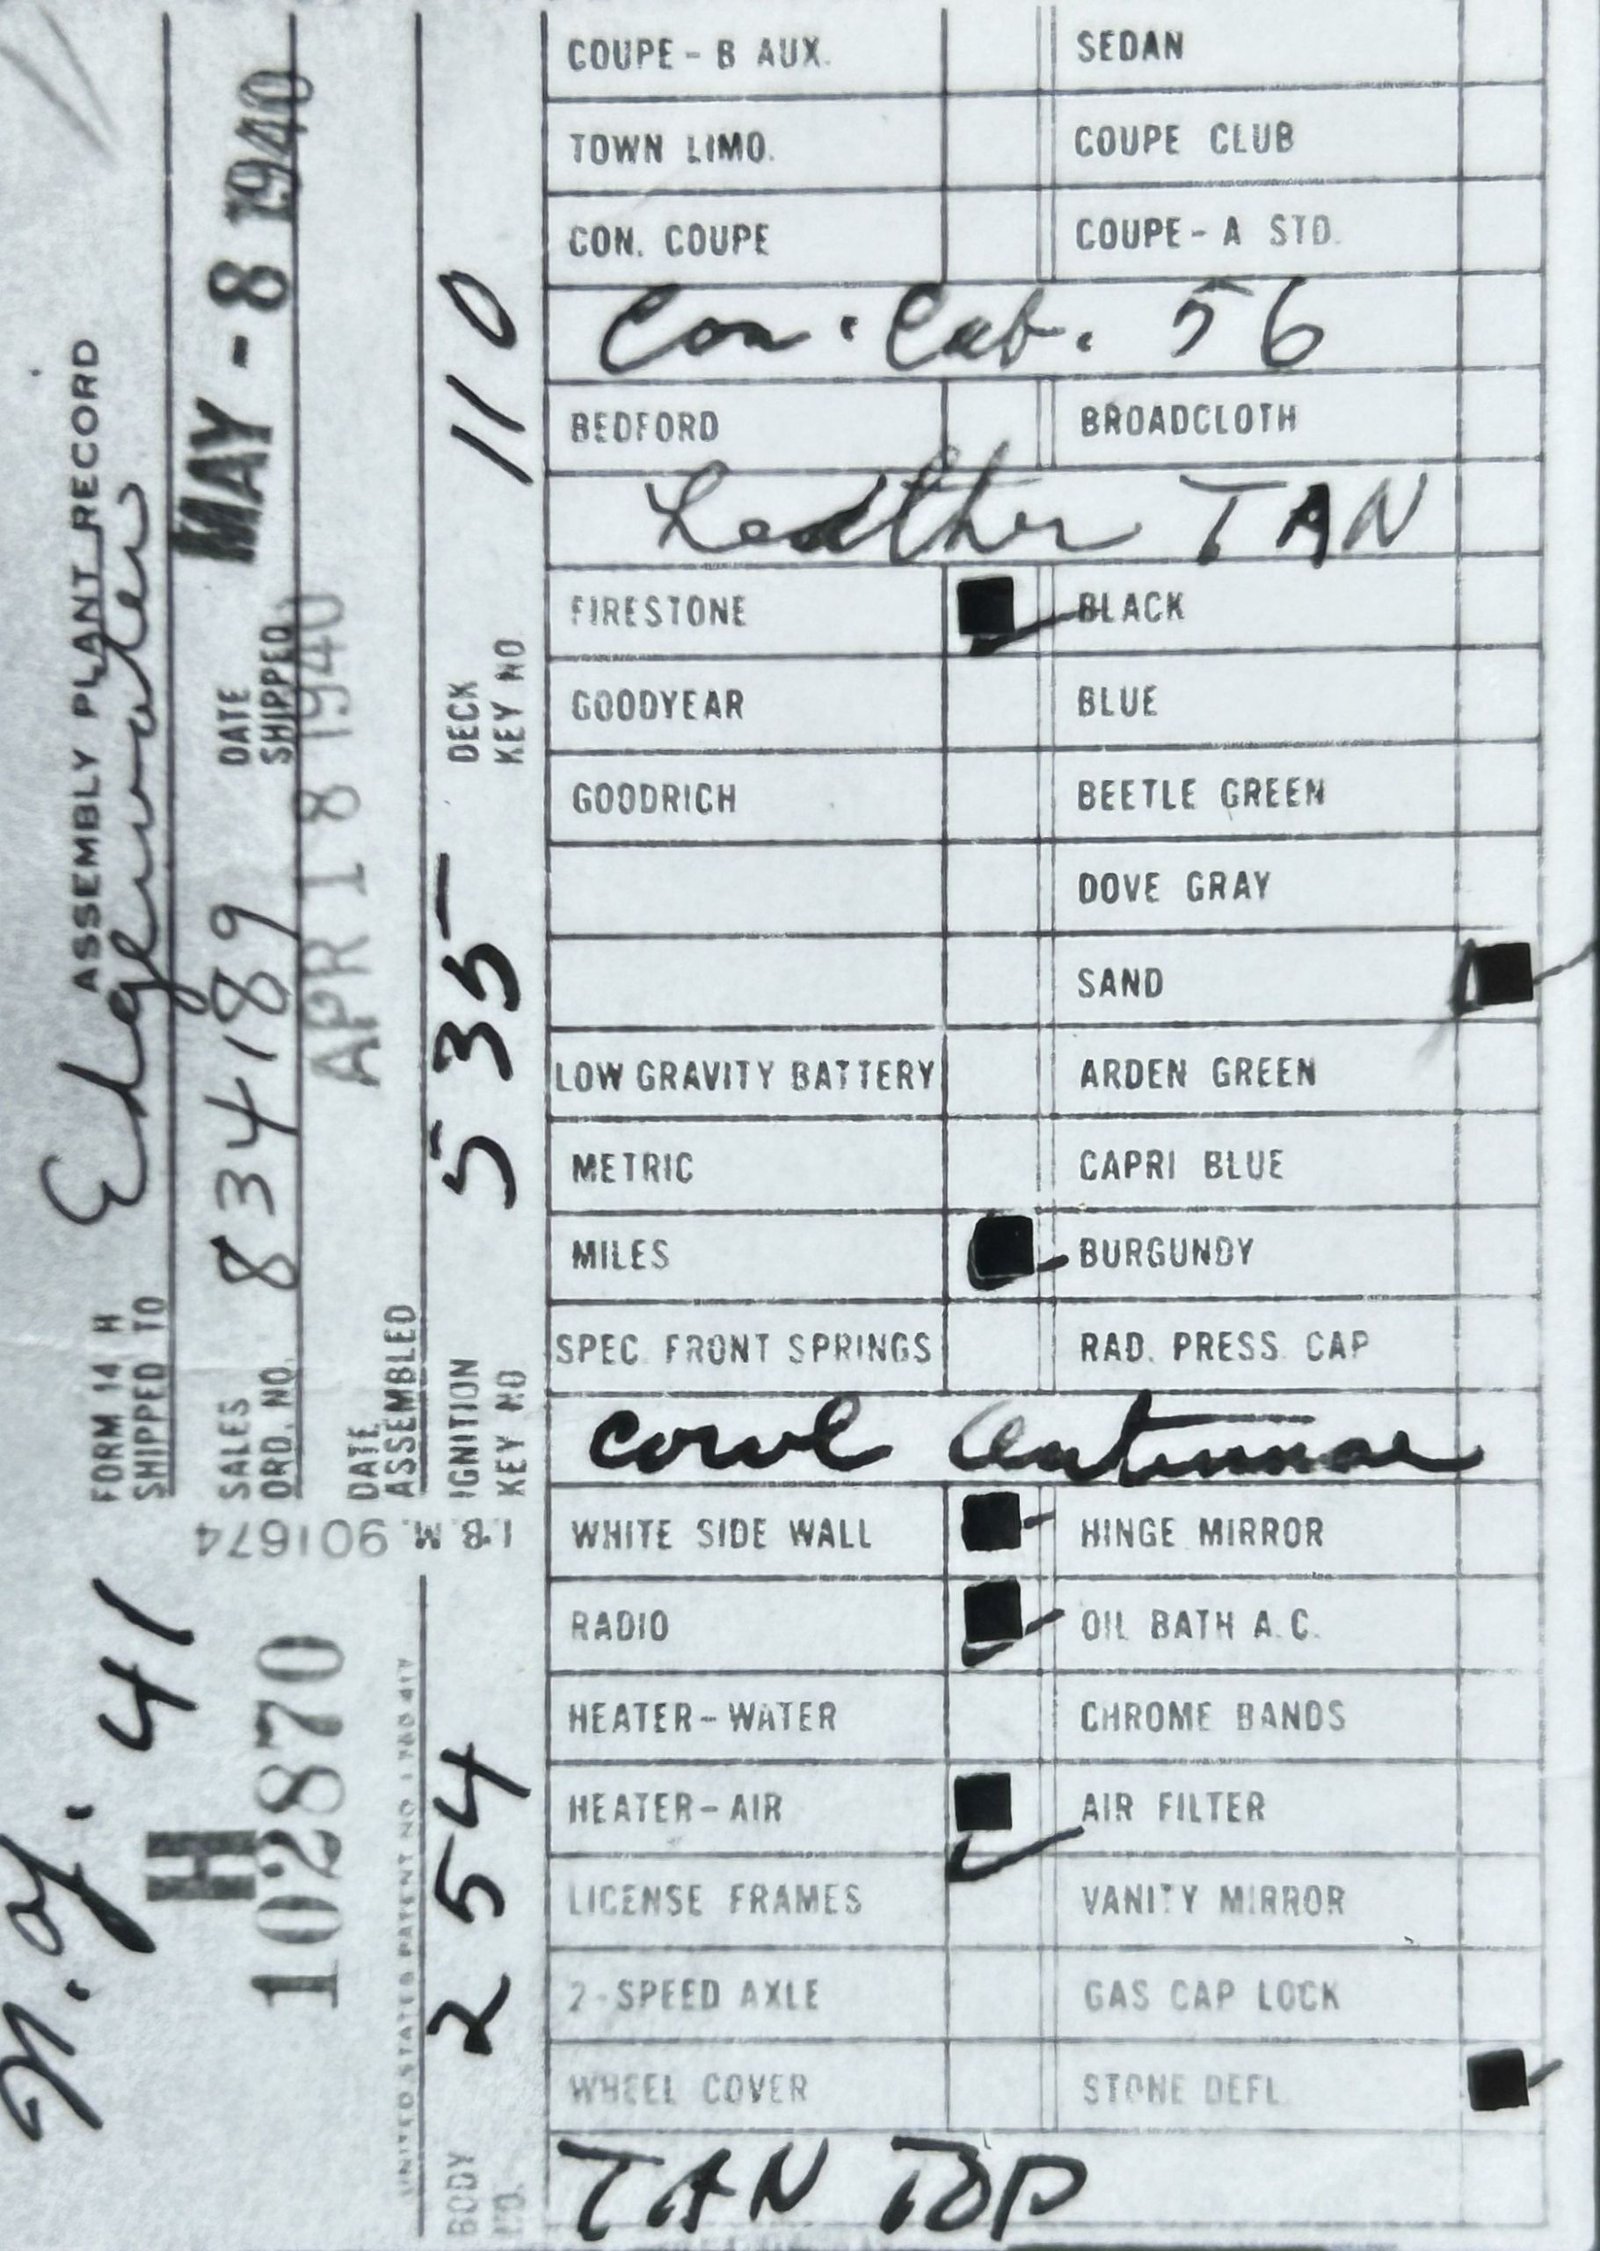 FORM 14 H ASSEMBLY PLANT RECORD
SHIPPED TO Edgewater
SALES ORD. NO. 834189 DATE SHIPPED MAY - 8 1940
DATE ASSEMBLED APR 18 1940
IGNITION KEY NO 535 DECK KEY NO 110
I.B.M. 901674
41
H
102870
BODY NO. 254
COUPE - B AUX. SEDAN
TOWN LIMO. COUPE CLUB
CON. COUPE COUPE - A STD.
Con. Cab. 56
BEDFORD BROADCLOTH
Leather TAN
FIRESTONE BLACK
GOODYEAR BLUE
GOODRICH BEETLE GREEN
DOVE GRAY
SAND
LOW GRAVITY BATTERY ARDEN GREEN
METRIC CAPRI BLUE
MILES BURGUNDY
SPEC. FRONT SPRINGS RAD. PRESS. CAP
cowl antennae
WHITE SIDE WALL HINGE MIRROR
RADIO OIL BATH A.C.
HEATER - WATER CHROME BANDS
HEATER - AIR AIR FILTER
LICENSE FRAMES VANITY MIRROR
2 - SPEED AXLE GAS CAP LOCK
WHEEL COVER STONE DEFL.
TAN TOP